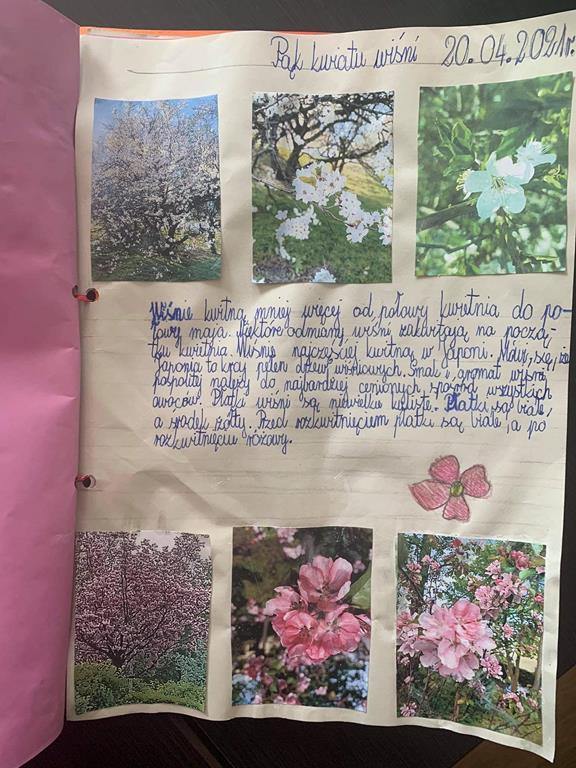 Pąk kwiatu wiśni 20.04.2021r.
Wiśnie kwitną mniej więcej od połowy kwietnia do po-
łowy maja. Niektóre odmiany wiśni zakwitają na począ-
tku kwietnia. Wiśnie najczęściej kwitną w Japoni. Mówi się, że
Japonia to kraj pełen drzew wiśniowych. Smak i aromat wiśni
pospolitej należy do najbardziej cenionych spośród wszystkich
owoców. Płatki wiśni są niewielkie kuliste. Płatki są białe,
a środek żółty. Przed rozkwitnięciem płatki są białe, a po
rozkwitnięciu różowy.